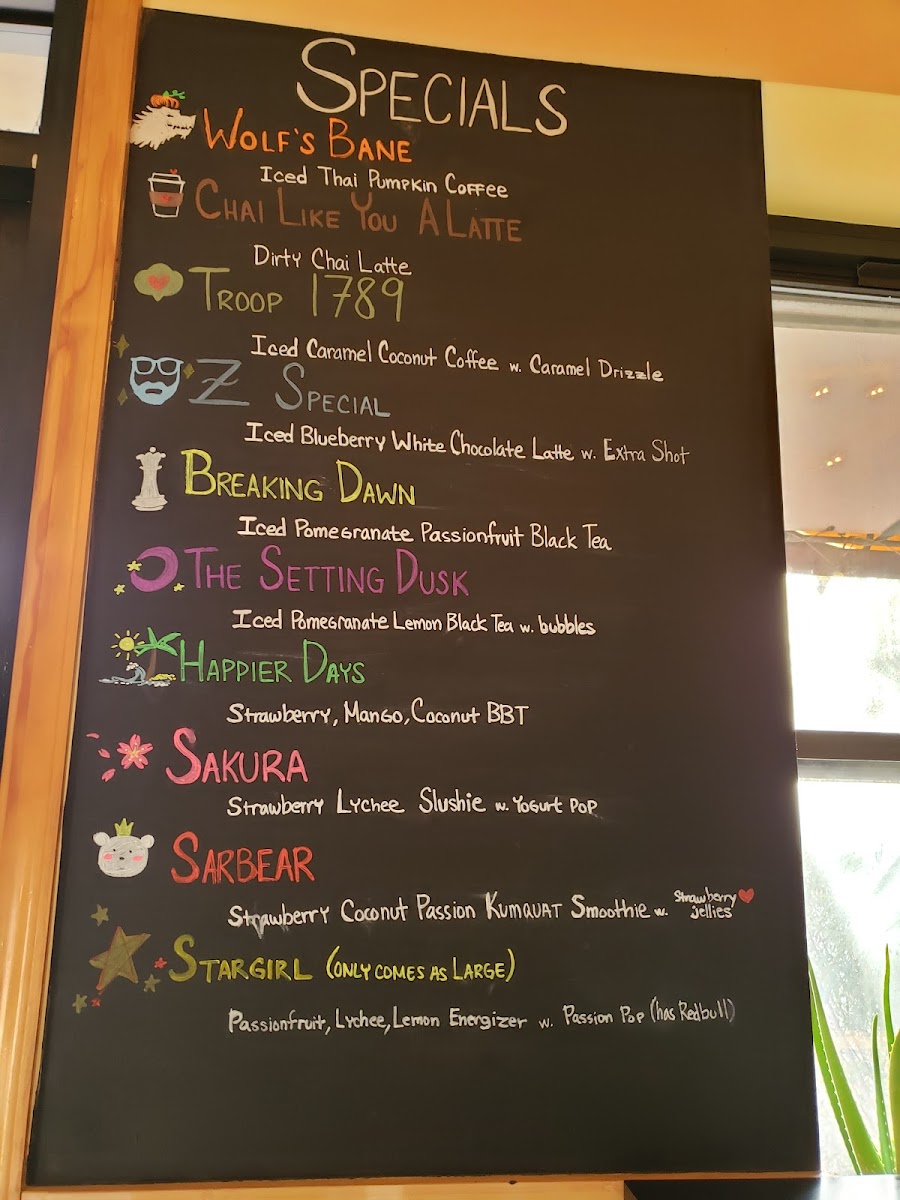 SPECIALS
WOLF'S BANE
Iced Thai Pumpkin Coffee
CHAI LIKE YOU A LATTE
Dirty Chai Latte
TROOP 1789
Iced Caramel Coconut Coffee w. Caramel Drizzle
Z SPECIAL
Iced Blueberry White Chocolate Latte w. Extra Shot
BREAKING DAWN
Iced Pomegranate Passionfruit Black Tea
THE SETTING DUSK
Iced Pomegranate Lemon Black Tea w. bubbles
HAPPIER DAYS
Strawberry, Mango, Coconut BBT
SAKURA
Strawberry Lychee Slushie w. Yogurt Pop
SARBEAR
Strawberry Coconut Passion Kumquat Smoothie w. Strawberry jellies
STARGIRL (ONLY COMES AS LARGE)
Passionfruit, Lychee, Lemon Energizer w. Passion Pop (has Redbull)